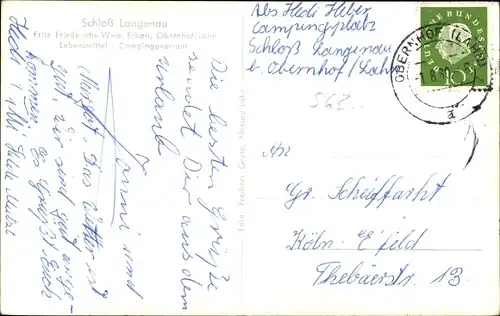 Schloß Langenau
Fritz Friederichs Wwe. Erben, Obernhof/Lahn
Lebensmittel - Campingproviant
Die besten Grüße
sendet Dir aus dem
Urlaub
und
Das Wetter ist
gut, wir sind gut ange-
kommen. Es grüßt Euch
Hedi
Abs. Hedi Heber
Campingplatz
Schloß Langenau
b. Obernhof/Lahn
OBERNHOF (LAHN)
a
DEUTSCHE BUNDESPOST
10
562
An
Gr. Schiffarht
Köln-E'feld
Thebäerstr. 13